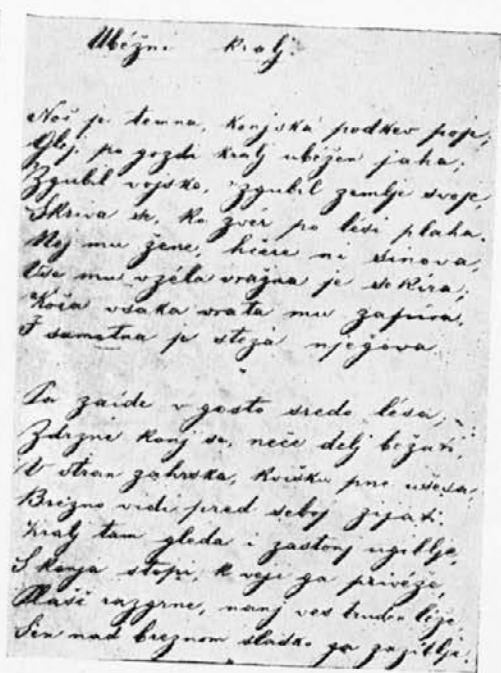 Ubéžni kralj.
Noč je temna, konjska podkev poje,
Glej, po gozdi kralj ubéžen jaha;
Zgubil vojsko, zgubil zemlje svoje,
Skriva se, ko zvér po lési plaha.
Nej mu žene, hčere ni sinova,
Vse mu vzéla vražna je sekira;
Koča vsaka vrata mu zapira,
I samotna je steza njegova.
Ta zaide v gosto sredo lésa,
Zdrzne konj se, neče delj bežati,
V stran zahrska, kvišku pne ušesa,
Brezno vidi pred seboj zijati.
Kralj tam gleda i zastonj ugiblje,
S konja stopi, k veji ga privéže,
Plašč razgrne, nanj ves truden léže,
Sen nad breznom sladko ga zaziblje.